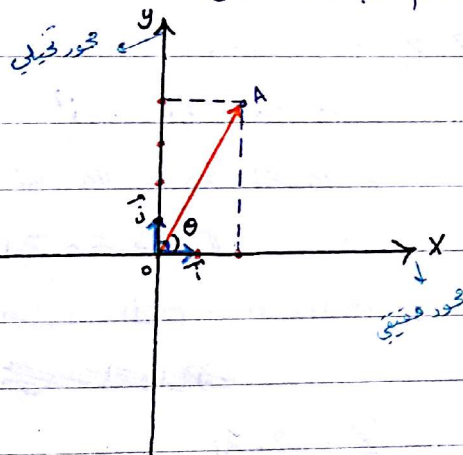 y
محور تخيلي
A
j
θ
o
i
X
محور حقيقي